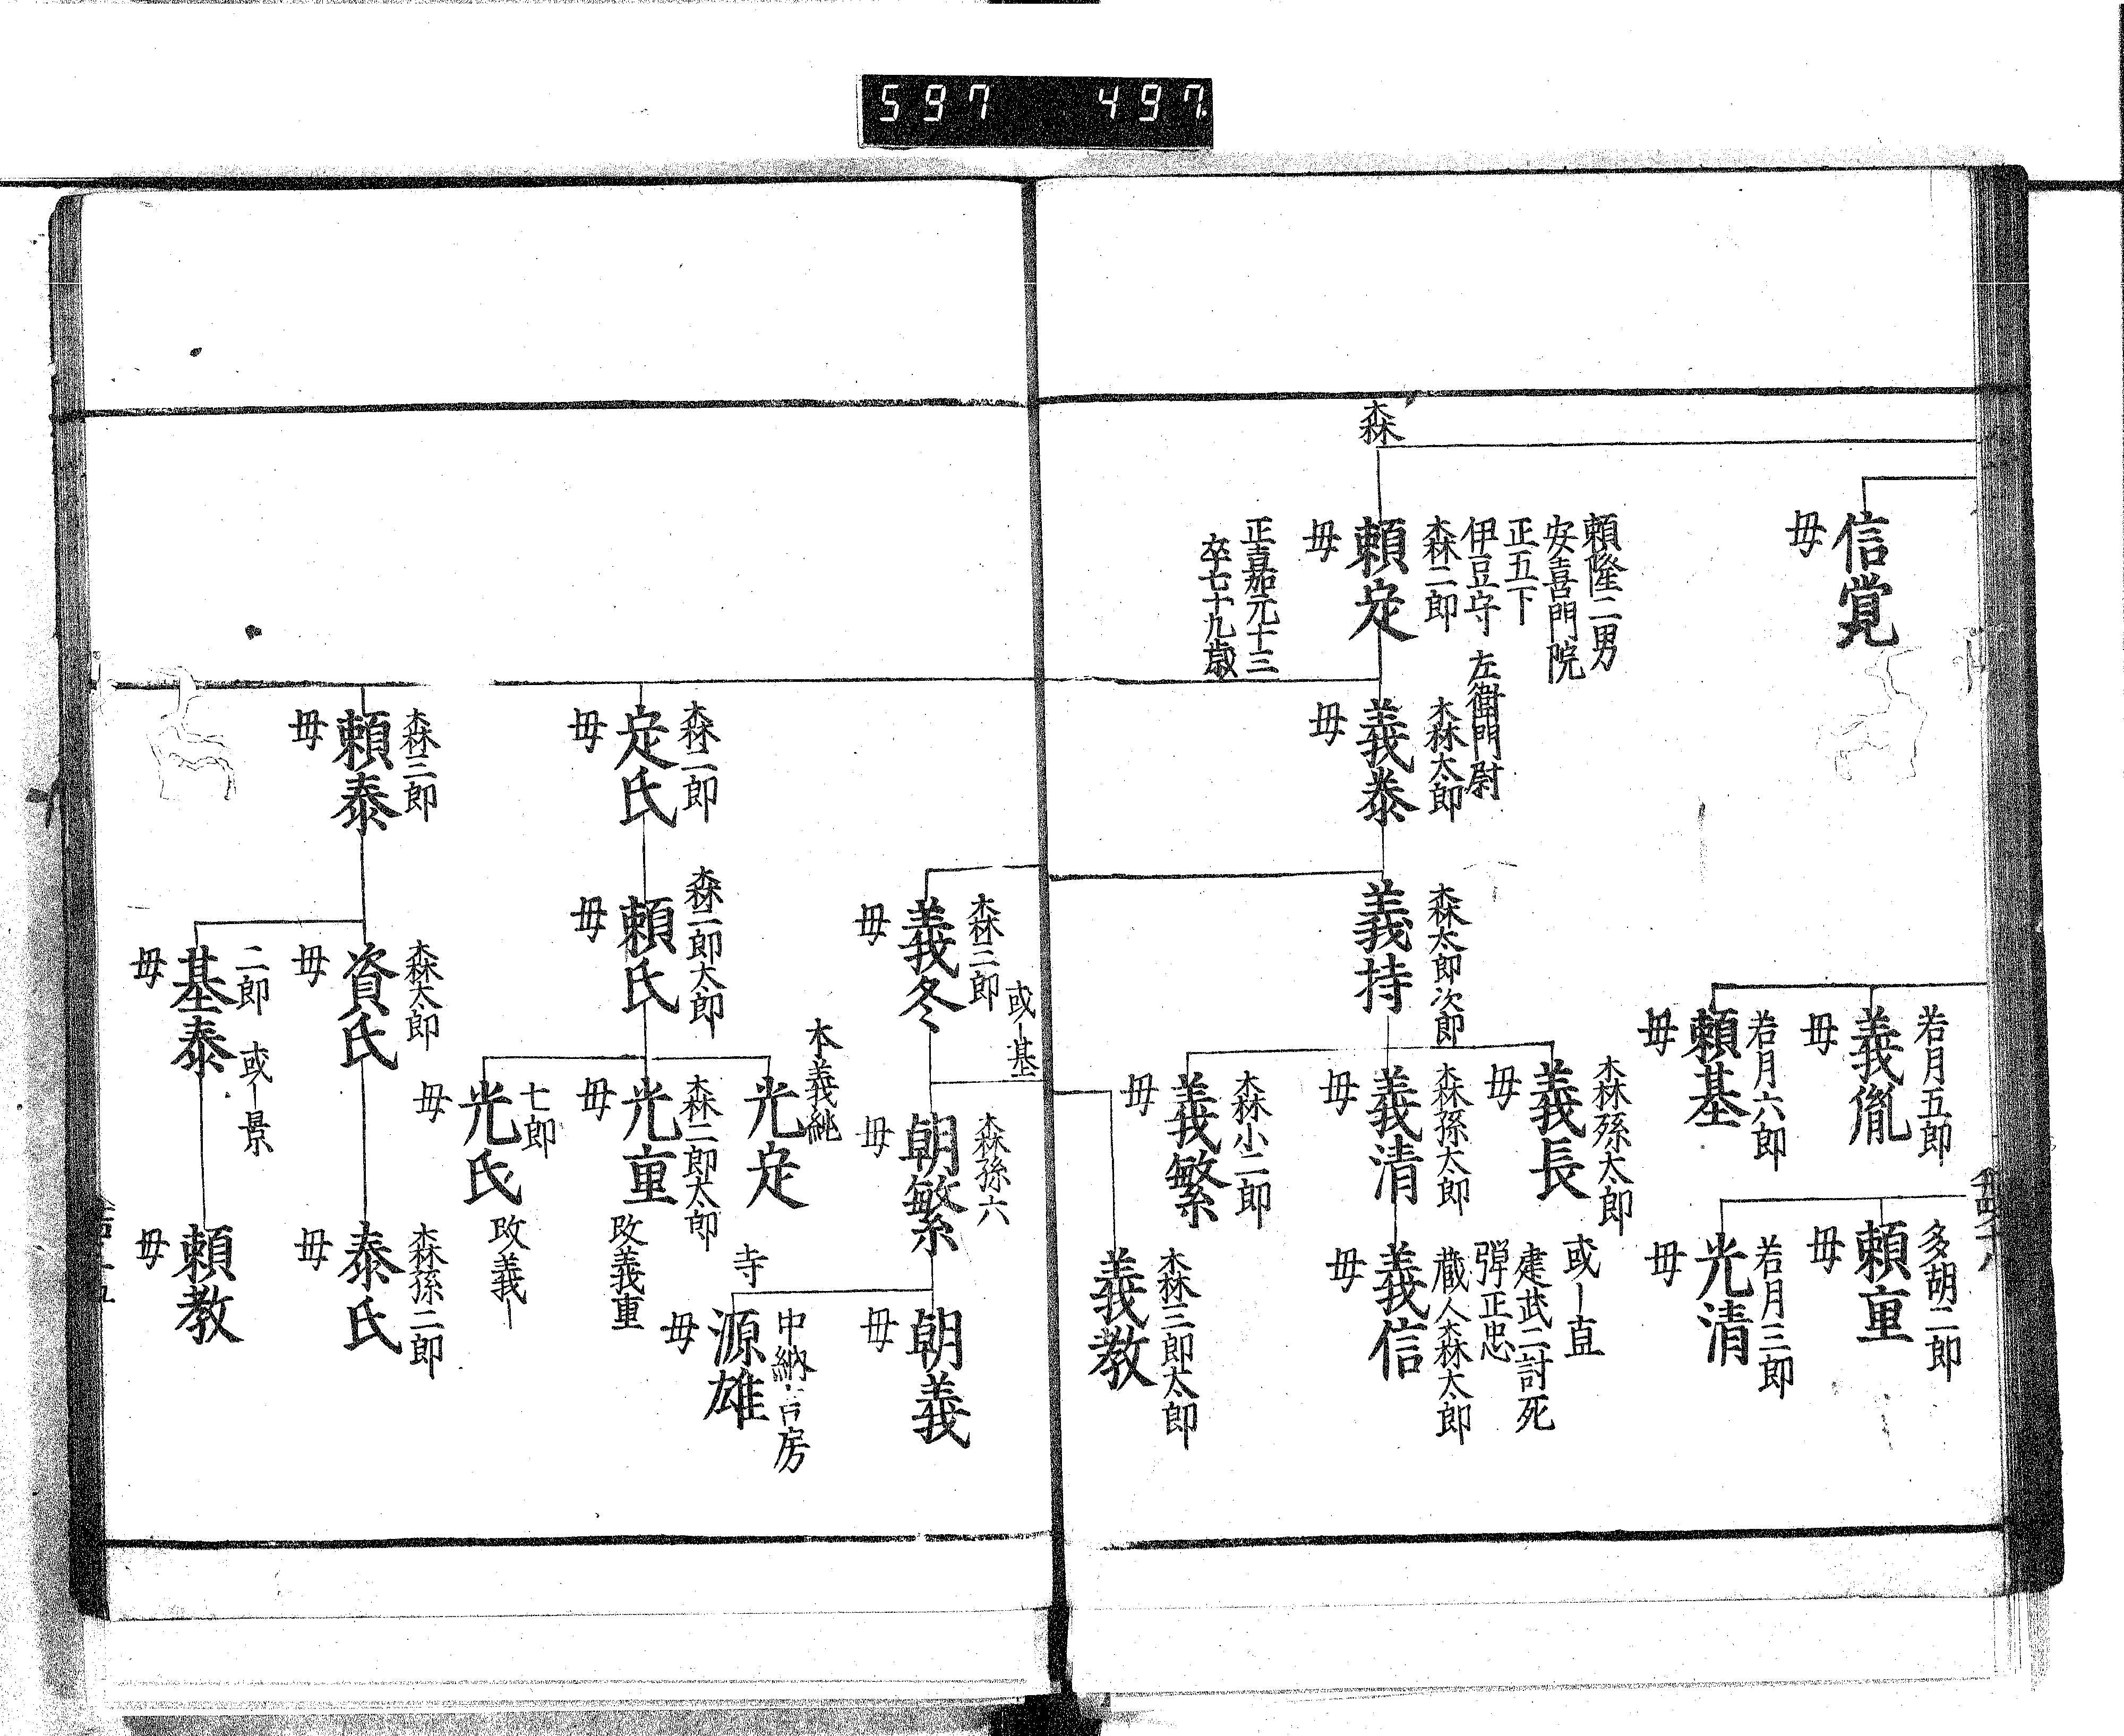 597 497
信覚
母
森
頼隆二男
安喜門院
正五下
伊豆守 左衛門尉
森二郎
頼定
母
正嘉元十三
卒七十九歳
森太郎
義泰
母
森太郎次郎
義持
母
若月五郎
義胤
母
若月六郎
頼基
母
多胡二郎
頼重
母
若月三郎
光清
母
森孫太郎
義長
母
或一直
建武二討死
弾正忠
森孫太郎
義清
母
蔵人森太郎
義信
母
森小二郎
義繁
母
森三郎太郎
義教
森二郎
或一基
義冬
母
森孫六
朝繁
母
朝義
母
寺
中納言房
源雄
母
森二郎
定氏
母
森二郎太郎
頼氏
母
本義純
光定
森二郎太郎
光重
母
改義重
七郎
光氏
母
改義一
森三郎
頼泰
母
森太郎
資氏
母
森孫二郎
泰氏
母
二郎 或一景
基泰
母
頼教
母